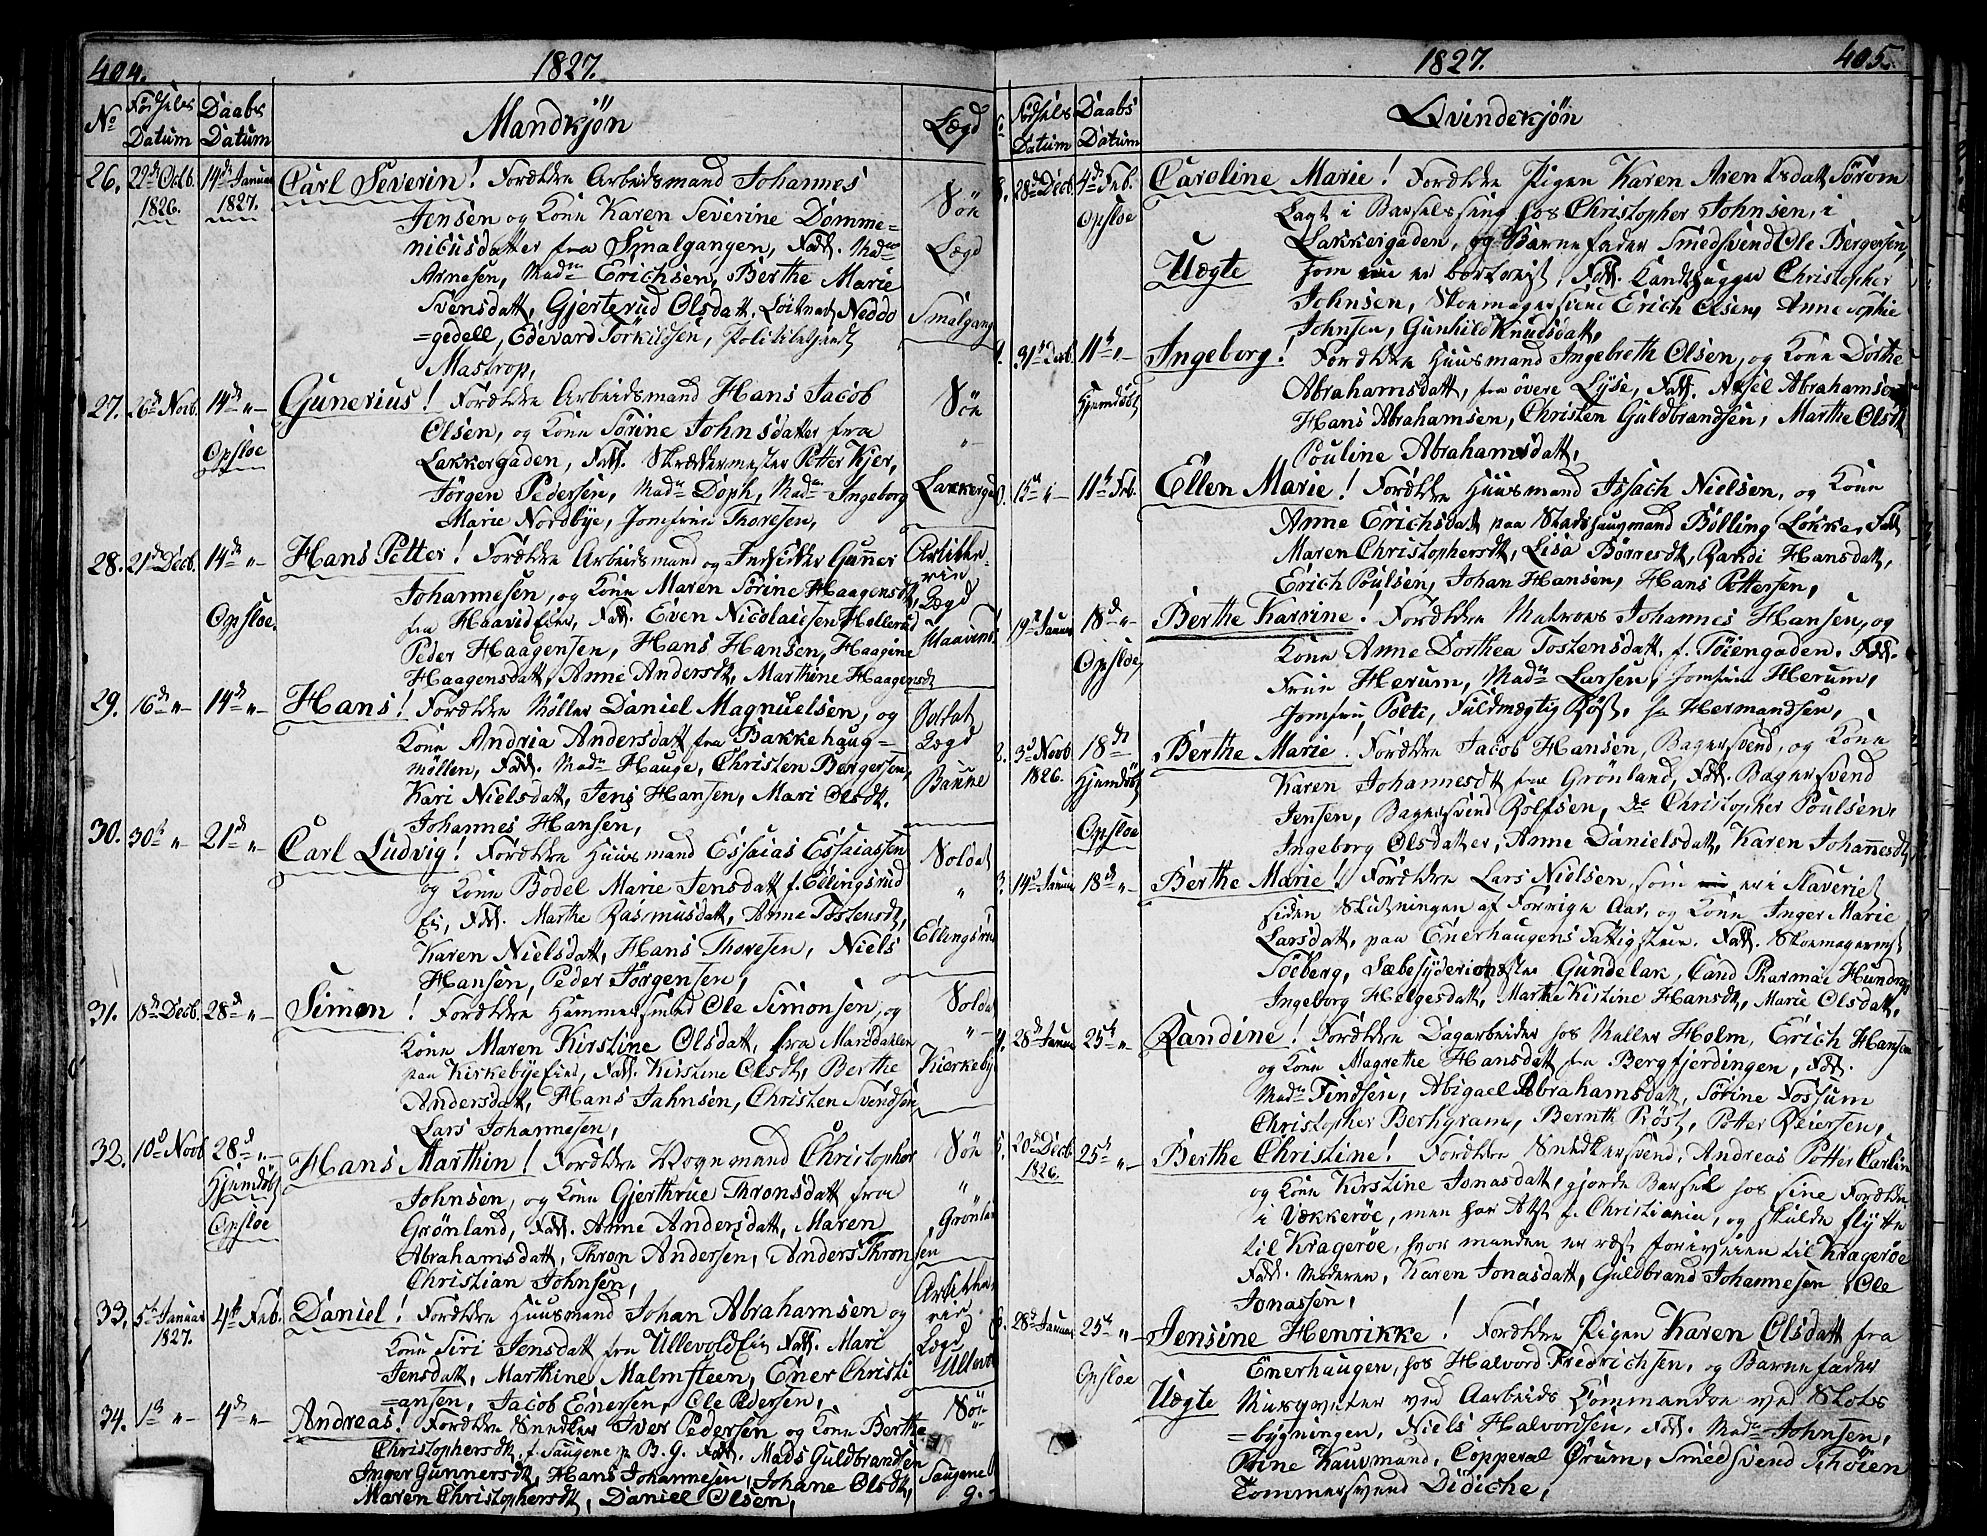 404.
1827.
No Fødsels Datum Daabs Datum Mandkjøn Lægd
26. 22de Octb. 1826. 14de Januar 1827. Carl Severin! Forældre Arbeidsmand Johannes Søe
Jensen og Kone Karen Severine Domme-
nicusdatter fra Smalgangen, Fadd. Madme Lægd
Arnesen, Madme Erichsen, Berthe Marie
Svensdatt, Gjerterud Olsdatt, Løitnat Neddo Smalgang
=gedell, Edevard Torkildsen, Politibetjent
Mastrop,
27. 26de Novb. 14de "— Opsloe Gunerius! Forældre Arbeidsmand Hans Jacob Søe
Olsen, og Kone Sørine Johnsdatter fra "—
Lakkergaden, Fadd. Skræddermester Petter Kjer,
Jørgen Pedersen, Madme Doph, Madme Ingeborg Lakkerga
Marie Nordbye, Jomfrue Thoresen,
28. 21de Decb. 14de "— Opsloe. Hans Petter! Forældre Arbeidsmand og Indsidder Gunner Artille-
Johannesen, og Kone Maren Sørine Haagensdt, rie Lægd
fra Haavideier, Fadd. Even Nicolaisen Hollerud
Peder Haagensen, Hans Hansen, Haagine
Haagensdatt, Anne Andersdt, Marthine Haagensdt
29. 16de "— 14de "— Hans! Forældre Møller Daniel Magnuelsen, og Soldat
Kone Andria Andersdatt fra Bakkehaug- Lægd
møllen, Fadd. Madme Hauge, Christen Bergersen,
Kari Nielsdatt, Jens Hansen, Mari Olsdt.
Johannes Hansen,
30. 30te "— 21de "— Carl Ludvig! Forældre Huusmand Essaias Essaiassen Soldat
og Kone Bodel Marie Jensdatt f. Ellingsrud "
Ei, Fadd. Marthe Rasmusdatt, Anne Tostensdt,
Karen Nielsdatt, Hans Thoresen, Niels Ellingsrud
Hansen, Peder Jørgensen,
31. 18de Decb. 28de "— Simon! Forældre Hammersmed Ole Simonsen, og Soldat
Kone Maren Kirstine Olsdatt, fra Maridahlen "—
paa Kirkebyeeied, Fadd. Kirstine Olsdt, Berthe Kierkeby
Andersdatt, Hans Jahnsen, Christen Svendsen
Lars Johannesen,
32. 10de Novb 28de "— Hjemdøbt Opsloe Hans Marthin! Forældre Vognmand Christopher Søe
Johnsen, og Kone Gjerthrue Thronsdatt fra "
Grønland, Fadd. Anne Andersdatt, Maren Grønlan
Abrahamsdatt, Thron Andersen, Anders Thronsen
Christian Johnsen,
33. 5te Januar 1827. 4de Feb. Daniel! Forældre Huusmand Johan Abrahamsen og Artille
Kone Siri Jensdatt fra Ullevold Ei, Fadd. Mari rie Lægd
Jensdatt, Marthine Malmsteen, Ener Christi Ullevo
=ansen, Jacob Enersen, Ole Pedersen,
34. 1ste "— 4de "— Andreas! Forældre Snedker Iver Pedersen og Kone Berthe Søe
Christophersdt, f. Saugene p. B. G. Fadd. Mads Guldbrandsen "
Inger Gunnersdt, Hans Johannesen, Johane Olsdt, Saugene
Maren Christophersdt, Daniel Olsen, g.
1827.
405.
Fødsels Datum Daabs Datum Qvindekjøn
8. 28de Decb. 4de Feb. Opsloe Caroline Marie! Forældre Pigen Karen Arentsdatt Sørom
Lagt i Barselseng hos Christopher Johnsen, i
Lakkergaden, og Barnefader Smedsvend Ole Bergersen,
Uægte som er bortreist, Fadd. Kandthugger Christopher
Johnsen, Skomagersvend Erich Olsen, Anne Sophie
Johnsen, Gunhild Knudsdatt,
9. 31te Decb 11te "— Hjemdøbt Ingeborg! Forældre Huusmand Ingebreth Olsen, og Kone Dorthe
Abrahamsdatt, fra øvere Lyse, Fadd. Axsel Abrahamsen
Hans Abrahamsen, Christen Guldbrandsen, Marthe Olsdt
Pouline Abrahamsdatt,
0. 15de "— 11te Feb. Ellen Marie! Forældre Huusmand Issach Nielsen, og Kone
Anne Erichsdatt paa Stadshaugmand Bølling Løkke, Fadd
Maren Christophersdt, Lisa Børresdt, Randi Hansdatt,
Erich Poulsen, Johan Hansen, Hans Pettersen,
19de Januar 18de "— Opsloe, Berthe Karrine! Forældre Matros Johannes Hansen, og
Kone Anne Dorthea Tostensdatt, f. Tøiengaden. Fadd.
Frue Herum, Madme Larsen, Jomfrue Herum,
Jomfru Polti, Fuldmægtig Røst, Hr Hermandsen,
2. 3de Novb 1826. 18de Hjemdøbt Opsloe Berthe Marie! Forældre Jacob Hansen, Bagersvend, og Kone
Karen Johannesdt fra Grønland, Fadd. Bagersvend
Jensen, Bagersvend Rolfsen, Do Christopher Poulsen,
Ingeborg Olsdatter, Anne Danielsdatt, Karen Johannesdt,
3. 14de Januar 18de "— Berthe Marie! Forældre Lars Nielsen, som er i Slaveriet
siden Slutningen af Forrige Aar, og Kone Inger Marie
Larsdatt, paa Enerhaugens Fattigstue. Fadd. Skomagermst
Søeberg, Sæbesyderimester Gundelak, Cand Pharmac Hundrop
Ingeborg Helgesdatt, Marthe Kistine Hansdt, Marie Olsdatt,
4. 28de Januar 25de "— Randine! Forældre Dagarbeider hos Maller Holm, Erich Hansen
og Kone Magrethe Hansdatt fra Bergfjerdingen, Fadd.
Madme Findsen, Abigael Abrahamsdatt, Sørine Fossum
Christopher Berhgram, Bernth Prøst, Petter Reiersen,
5. 20de Decb 1826. 25de "— Berthe Christine! Forældre Snedkersvend, Andreas Petter Carlin
og Kone Kirstine Jonasdatt, gjorde Barsel hos sine Forældre
i Vækkerøe, men har Atst f. Christiania, og skulde flytte
til Kragerøe, hvor manden er reist foriveien til Kragerøe
Fadd. Moderen, Karen Jonasdatt, Guldbrand Johannesen Ole
Jonassen,
6. 28de Januar 25de "— Opsloe Jensine Henrikke! Forældre Pigen Karen Olsdatt fra
Enerhaugen, hos Halvord Fredrichsen, og Barnefader
Uægte Musqveter ved Aarbeids Commandoen ved Slots
=bygningen, Niels Halvordsen, Fadd. Madme Johnsen,
Trine Kauvmand, Copperal Ørum, Smedsvend Thøien
Tommersvend Didiche,